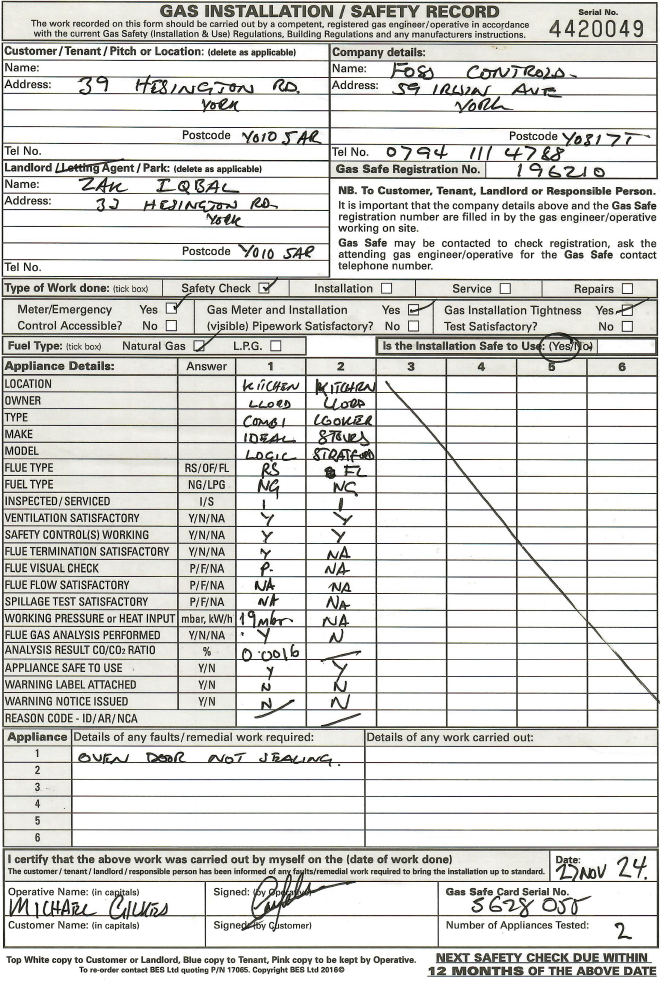 GAS INSTALLATION / SAFETY RECORD
The work recorded on this form should be carried out by a competent, registered gas engineer/operative in accordance
with the current Gas Safety (Installation & Use) Regulations, Building Regulations and any manufacturers instructions.
Serial No.
4420049
Customer/Tenant/Pitch or Location: (delete as applicable)
Name:
Address: 39 HESINGTON RD.
YORK
Postcode YO10 5AR
Tel No.
Company details:
Name: FOSS CONTROLS
Address: 59 IRWIN AVE
YORK
Postcode YO317T
Tel No. 0794 111 4788
Gas Safe Registration No. 196210
Landlord / Letting Agent / Park: (delete as applicable)
Name: ZAK IQBAL
Address: 32 HESINGTON RD
YORK
Postcode YO10 5AR
Tel No.
NB. To Customer, Tenant, Landlord or Responsible Person.
It is important that the company details above and the Gas Safe
registration number are filled in by the gas engineer/operative
working on site.
Gas Safe may be contacted to check registration, ask the
attending gas engineer/operative for the Gas Safe contact
telephone number.
Type of Work done: (tick box) Safety Check ✓ Installation Service Repairs
Meter/Emergency Yes ✓ Gas Meter and Installation Yes ✓ Gas Installation Tightness Yes ✓
Control Accessible? No (visible) Pipework Satisfactory? No Test Satisfactory? No
Fuel Type: (tick box) Natural Gas ✓ L.P.G. Is the Installation Safe to Use: (Yes/No)
Appliance Details: Answer 1 2 3 4 5 6
LOCATION KITCHEN KITCHEN
OWNER LLORD LLORD
TYPE COMBI COOKER
MAKE IDEAL STOVES
MODEL LOGIC STRATFORD
FLUE TYPE RS/OF/FL RS FL
FUEL TYPE NG/LPG NG NG
INSPECTED/SERVICED I/S I I
VENTILATION SATISFACTORY Y/N/NA Y Y
SAFETY CONTROL(S) WORKING Y/N/NA Y Y
FLUE TERMINATION SATISFACTORY Y/N/NA Y NA
FLUE VISUAL CHECK P/F/NA P. NA
FLUE FLOW SATISFACTORY P/F/NA NA NA
SPILLAGE TEST SATISFACTORY P/F/NA NA NA
WORKING PRESSURE or HEAT INPUT mbar, kW/h 19 mbr NA
FLUE GAS ANALYSIS PERFORMED Y/N/NA Y N
ANALYSIS RESULT CO/CO2 RATIO % 0.0016
APPLIANCE SAFE TO USE Y/N Y Y
WARNING LABEL ATTACHED Y/N N N
WARNING NOTICE ISSUED Y/N N N
REASON CODE - ID/AR/NCA
Appliance Details of any faults/remedial work required: Details of any work carried out:
1 OVEN DOOR NOT SEALING.
2
3
4
5
6
I certify that the above work was carried out by myself on the (date of work done)
The customer / tenant / landlord / responsible person has been informed of any faults/remedial work required to bring the installation up to standard.
Date:
27 NOV 24.
Operative Name: (in capitals)
MICHAEL GILKES
Signed: (by Operative)
Gas Safe Card Serial No.
5628055
Customer Name: (in capitals)
Signed: (by Customer)
Number of Appliances Tested: 2
Top White copy to Customer or Landlord, Blue copy to Tenant, Pink copy to be kept by Operative.
To re-order contact BES Ltd quoting P/N 17065. Copyright BES Ltd 2016©
NEXT SAFETY CHECK DUE WITHIN
12 MONTHS OF THE ABOVE DATE